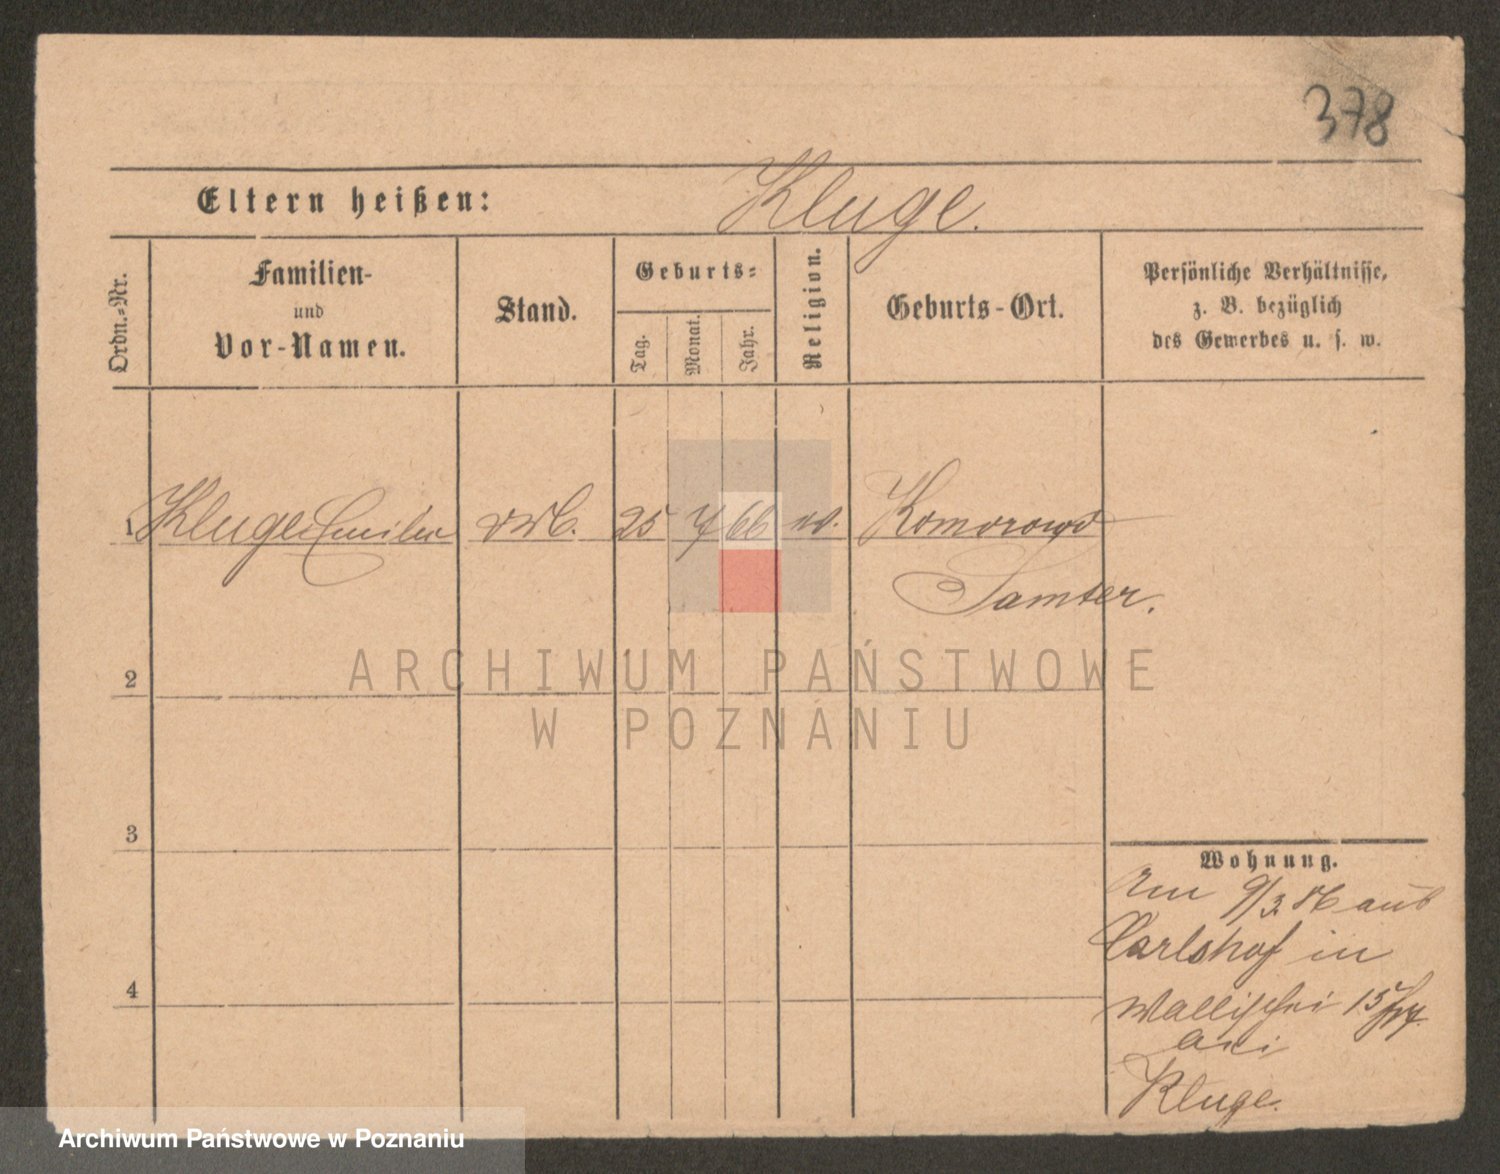 378
Eltern heißen: Kluge.
Ordn.-Nr.
Familien-
und
Vor-Namen.
Stand.
Geburts-
Tag.
Monat.
Jahr.
Religion.
Geburts-Ort.
Persönliche Verhältnisse,
z. B. bezüglich
des Gewerbes u. s. w.
1 Kluge 25 7 66 Komorowo
Samter.
ARCHIWUM PAŃSTWOWE
W POZNANIU
2
3
4
Wohnung.
Am 9/3. aus
Carlshof in
Wallischei 15
bei
Kluge.
Archiwum Państwowe w Poznaniu